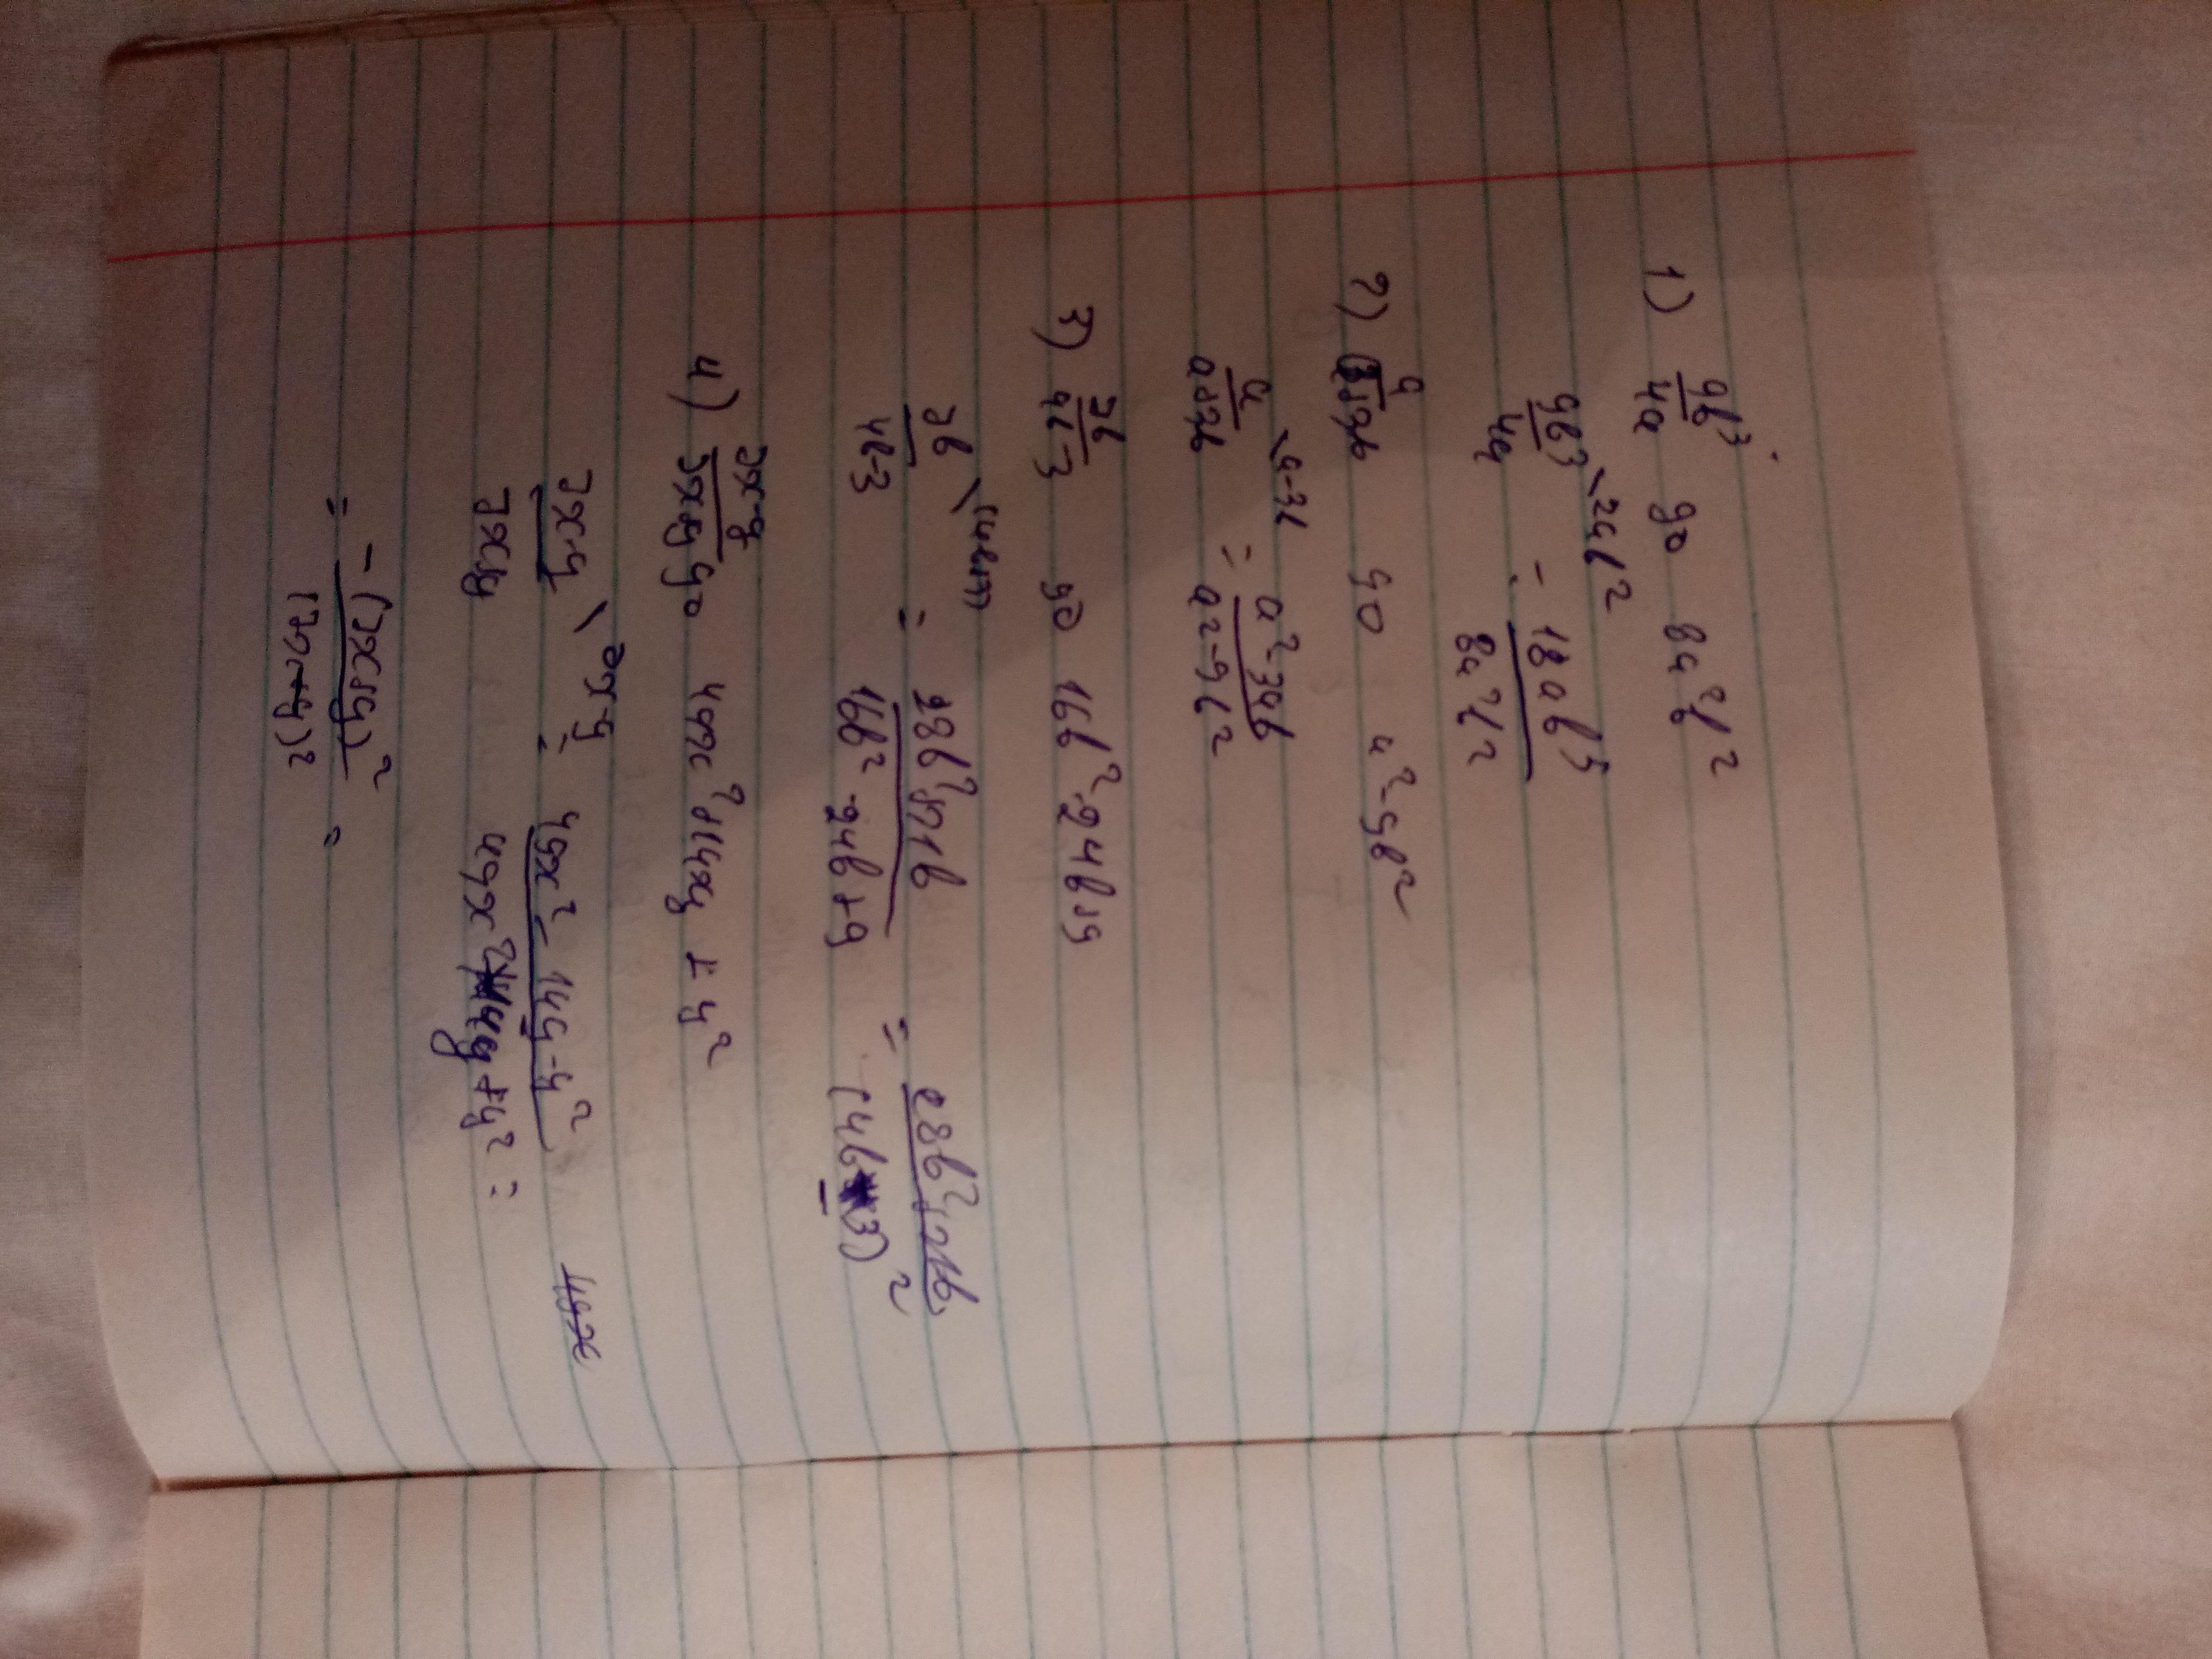 1) 9b³/4a до 8a²b²
9b³/4a \2ab² = 18ab⁵/8a²b²
2) a/a+3b до a²-9b²
a/a+3b \a-3b = a²-3ab/a²-9b²
3) 7b/4b-3 до 16b²-24b+9
7b/4b-3 = 28b²+21b/16b²-24b+9 = 28b²+21b/(4b-3)²
4) 7x-y/7x+y до 49x²+14xy+y²
7x-y/7x+y \7x-y = 49x²-14y-y²/49x²+14xy+y² =
= -(7x+y)²/(7x+y)² =